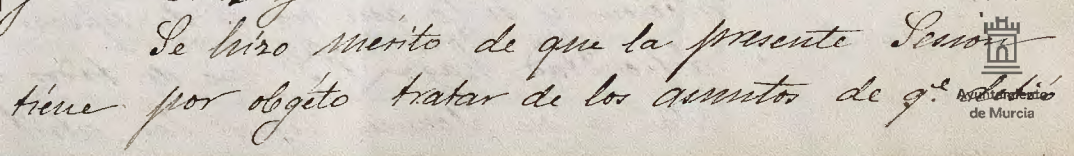 Se hizo merito de que la presente Sesion
tiene por obgéto tratar de los asuntos de q.e debió
Ayuntamiento
de Murcia